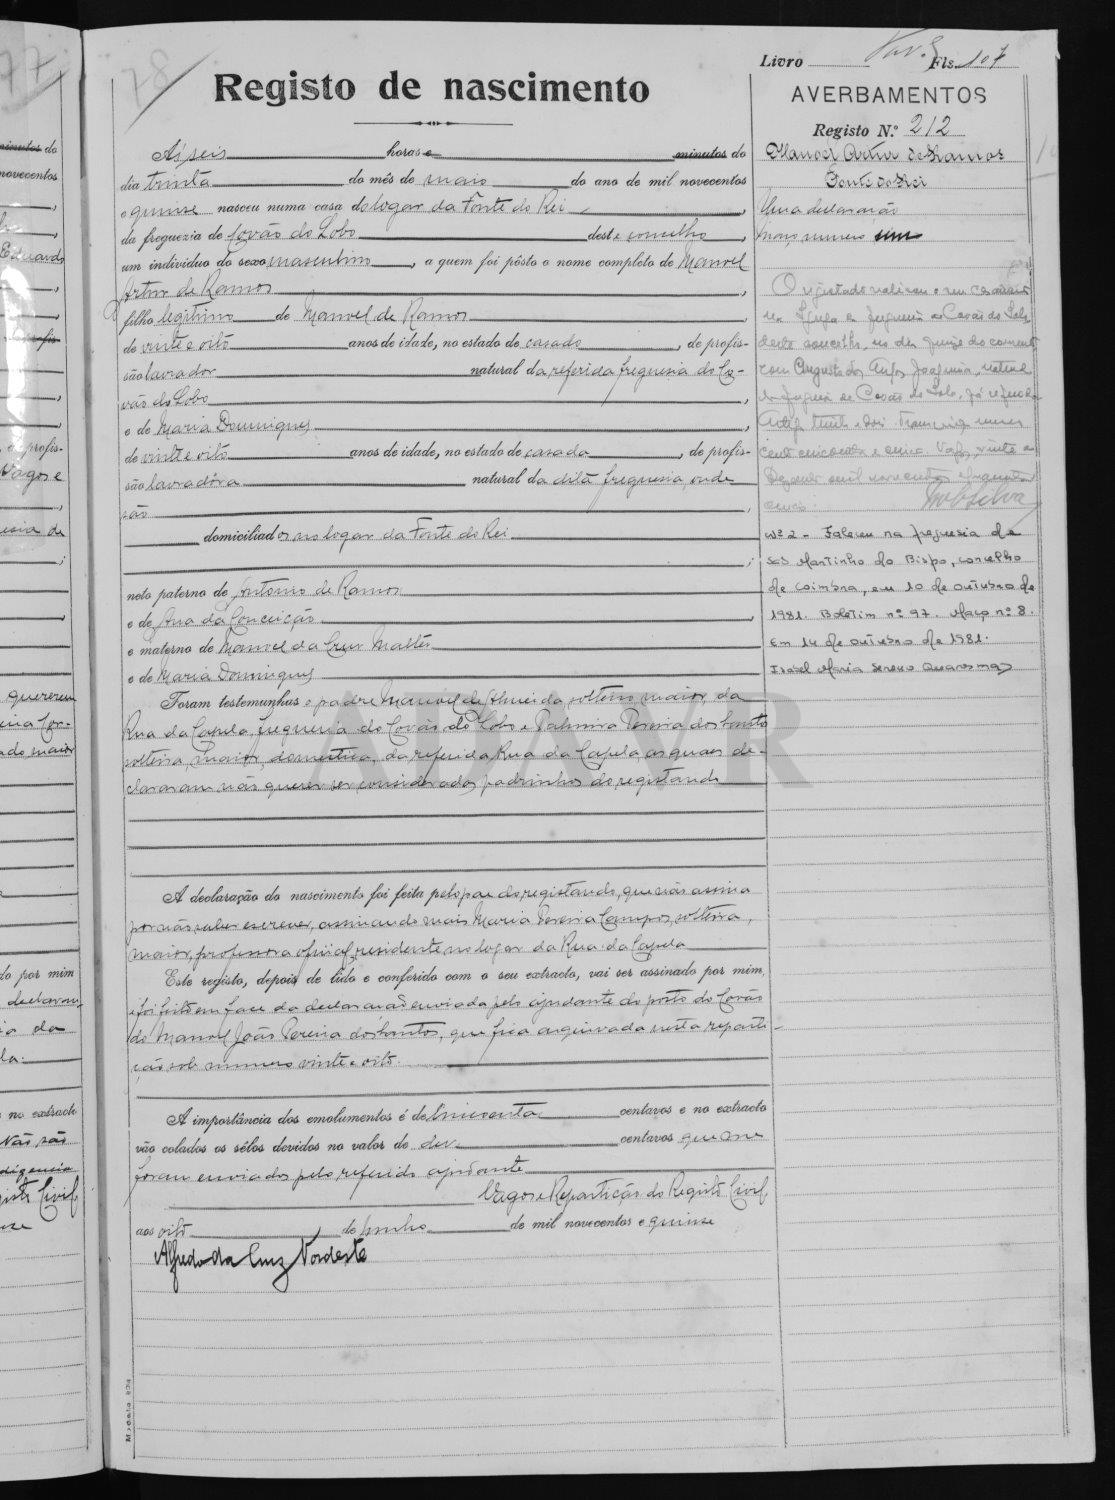 77
minutos do
novecentos
Eduardo
de profis-
Vagos e
quererem
do por mim
declaração
no extracto
Não são
Civil
78
Livro Fls. 107
Registo de nascimento
AVERBAMENTOS
Registo N.º 212
Manoel Artur de Ramos
Fonte do Rei
Uma declaração
maço numero um
Ás seis horas e minutos do
dia trinta do mês de maio do ano de mil novecentos
e quinse nasceu numa casa do logar da Fonte do Rei
da freguezia de Covão do Lobo deste concelho,
um individuo do sexo masculino, a quem foi pôsto o nome completo de Manoel
Artur de Ramos,
filho legitimo de Manoel de Ramos,
de vinte e oito anos de idade, no estado de casado, de profis-
são lavrador natural da referida freguesia do Co-
vão do Lobo,
e de Maria Domingues,
de vinte e oito anos de idade, no estado de casada, de profis-
são lavradôra natural da dita freguesia, onde
são,
domiciliados no logar da Fonte do Rei
;
neto paterno de Antonio de Ramos
e de Ana da Conceição,
e materno de Manoel da Cruz Mattos
e de Maria Domingues
Foram testemunhas o padre Manoel de Almeida, solteiro, maior, da
Rua da Capela, freguesia do Covão do Lobo e Palmira Pereira dos Santos
solteira, maior, domestica, da referida Rua da Capela, os quaes de-
clararam não querer ser considerados padrinhos do registando
A declaração do nascimento foi feita pelo pae do registando, que não assina
por não saber escrever, assinando mais Maria Pereira Campos, solteira,
maior, professora oficial, residente no logar da Rua da Capela
Este registo, depois de lido e conferido com o seu extracto, vai ser assinado por mim,
e foi feito em face da declaração enviada pelo ajudante do posto do Covão
do Manoel João Pereira dos Santos, que fica arquivada nesta reparti-
ção sob numero vinte e oito.
A importância dos emolumentos é de cincoenta centavos e no extracto
vão colados os sêlos devidos no valor de dez centavos que me
foram enviados pelo referido ajudante
Vagos e Repartição do Registo Civil,
aos oito de junho de mil novecentos e quinse
Alfredo da Cruz Nordeste
O registado realisou o seu casamento
na Igreja da freguesia de Covão do Lobo
deste concelho, no dia quinze do corrente
com Augusta dos Anjos Joaquina, natural
da freguesia de Covão do Lobo, já referida
Vagos, vinte e
Silva
Nº 2 - Faleceu na freguesia de
São Martinho do Bispo, concelho
de Coimbra, em 10 de outubro de
1981. Boletim nº 97. Maço nº 8.
Em 14 de outubro de 1981.
Isabel Maria Sereno Quaresma
AVR
Modelo